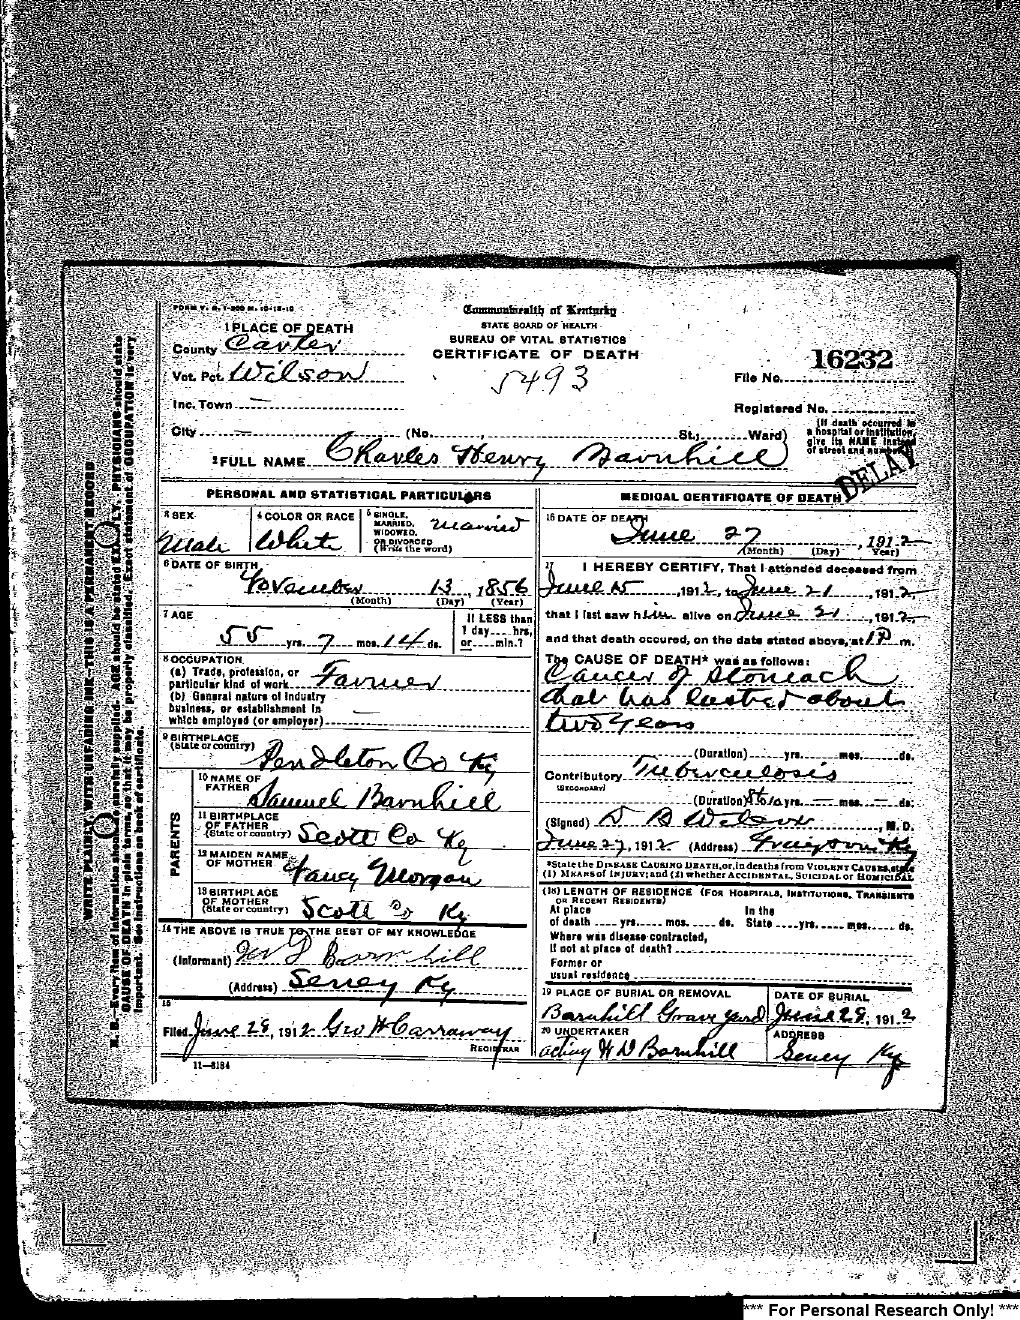 FORM V. S. 1-200 M. 10-12-10
Commonwealth of Kentucky
STATE BOARD OF HEALTH
BUREAU OF VITAL STATISTICS
CERTIFICATE OF DEATH
1 PLACE OF DEATH
County Carter
Vot. Pct. Wilson
5493
16232
File No.
Inc. Town —
Registered No.
City — (No. St.; Ward)
(If death occurred in
a hospital or institution,
give its NAME instead
of street and number.
2 FULL NAME Charles Henry Barnhill
DELAY
PERSONAL AND STATISTICAL PARTICULARS
3 SEX
Male
4 COLOR OR RACE
White
5 SINGLE,
MARRIED,
WIDOWED,
OR DIVORCED
(Write the word)
Married
6 DATE OF BIRTH
November 13, 1856
(Month) (Day) (Year)
7 AGE
55 yrs. 7 mos. 14 ds.
If LESS than
1 day....hrs,
or....min.?
8 OCCUPATION
(a) Trade, profession, or
particular kind of work Farmer
(b) General nature of industry
business, or establishment in
which employed (or employer) —
9 BIRTHPLACE
(State or country) Pendleton Co Ky
PARENTS
10 NAME OF
FATHER Samuel Barnhill
11 BIRTHPLACE
OF FATHER
(State or country) Scott Co Ky
12 MAIDEN NAME
OF MOTHER Nancy Morgan
13 BIRTHPLACE
OF MOTHER
(State or country) Scott Co Ky
14 THE ABOVE IS TRUE TO THE BEST OF MY KNOWLEDGE
(Informant) Barnhill
(Address) Seney Ky
15
Filed June 28, 1912 Geo H Carraway
REGISTRAR
11—3184
MEDICAL CERTIFICATE OF DEATH
16 DATE OF DEATH
June 27, 1912
(Month) (Day) (Year)
17 I HEREBY CERTIFY, That I attended deceased from
June 15, 1912, to June 21, 1912
that I last saw him alive on June 21, 1912
and that death occured, on the date stated above, at 1 P m.
The CAUSE OF DEATH* was as follows:
Cancer of Stomach
that has lasted about
two years
(Duration) yrs. mos. ds.
Contributory Tuberculosis
(SECONDARY)
(Duration) 8 to 10 yrs. — mos. — ds.
(Signed) D B Wilson, M. D.
June 27, 1912 (Address) Grayson Ky
*State the DISEASE CAUSING DEATH, or, in deaths from VIOLENT CAUSES, state
(1) MEANS OF INJURY; and (2) whether ACCIDENTAL, SUICIDAL or HOMICIDAL
(18) LENGTH OF RESIDENCE (FOR HOSPITALS, INSTITUTIONS, TRANSIENTS
OR RECENT RESIDENTS)
At place In the
of death .... yrs. .... mos. .... ds. State .... yrs. .... mos. .... ds.
Where was disease contracted,
If not at place of death?
Former or
usual residence
19 PLACE OF BURIAL OR REMOVAL
Barnhill Grave yard
DATE OF BURIAL
June 28, 1912
20 UNDERTAKER
acting H D Barnhill
ADDRESS
Seney Ky
WRITE PLAINLY, WITH UNFADING INK—THIS IS A PERMANENT RECORD
N. B.—Every item of information should be carefully supplied. AGE should be stated EXACTLY. PHYSICIANS should state
CAUSE OF DEATH in plain terms, so that it may be properly classified. Exact statement of OCCUPATION is very
important. See instructions on back of certificate.
*** For Personal Research Only! ***